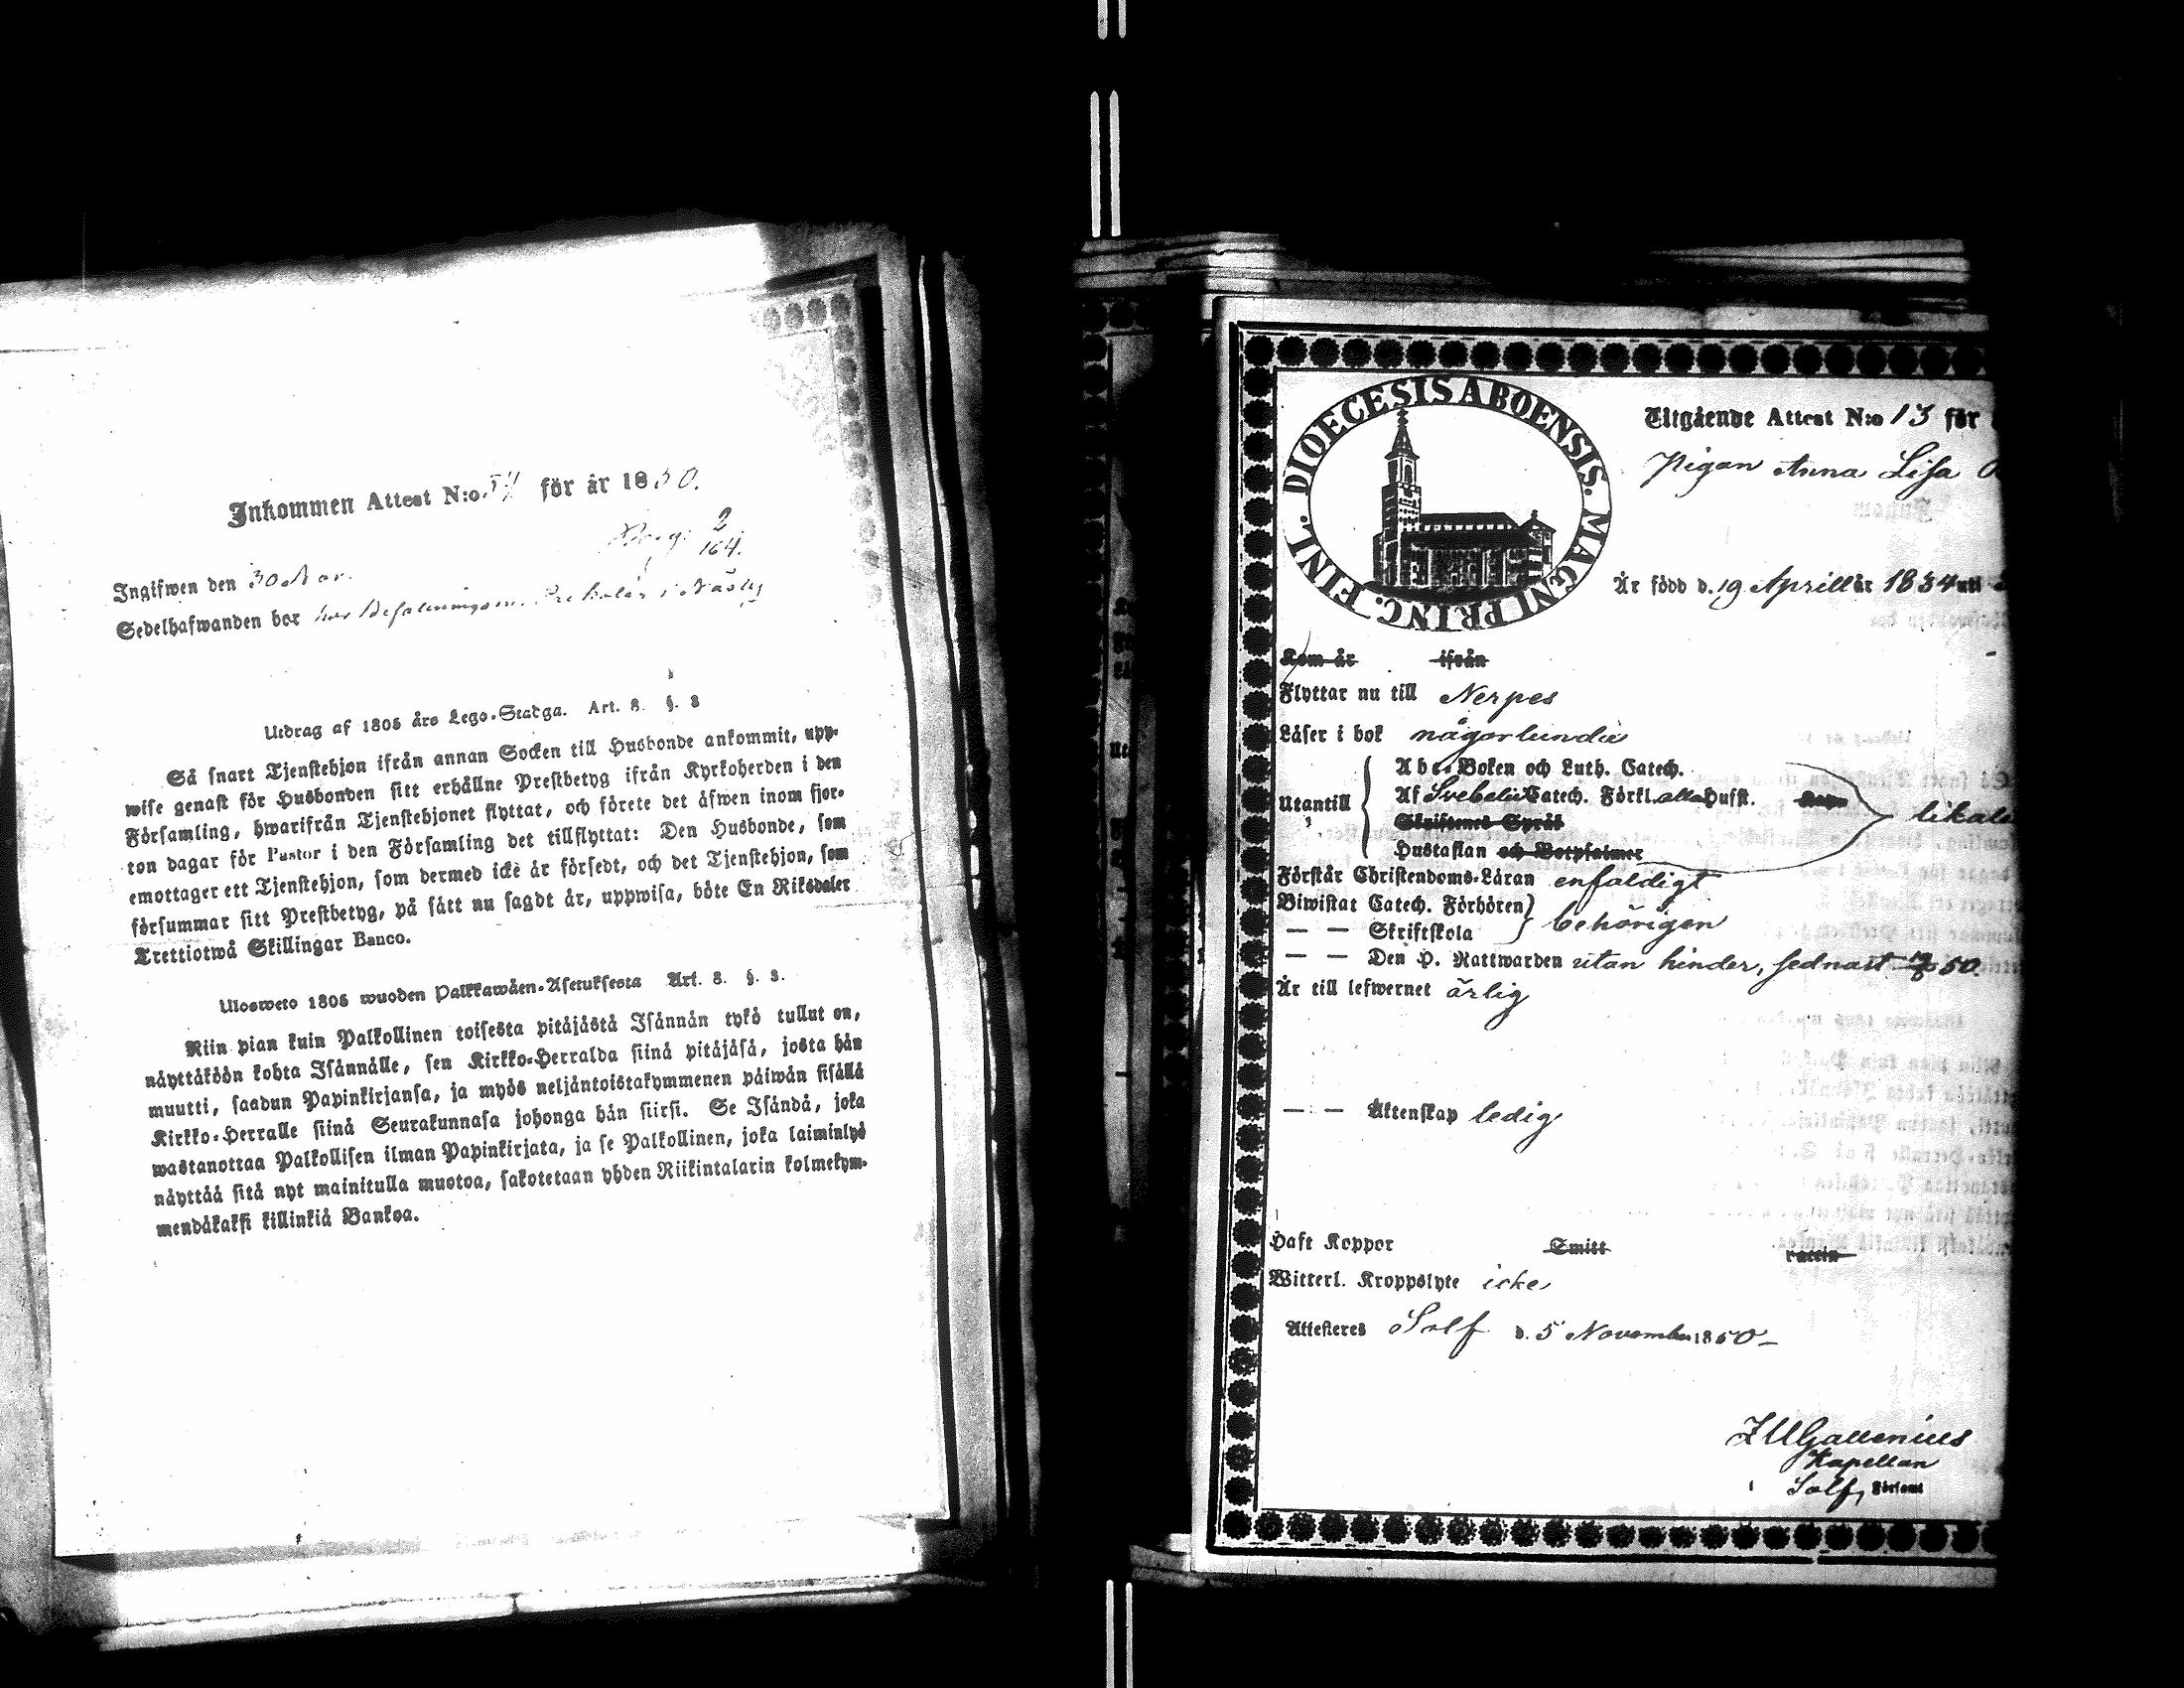 Inkommen Attest N:o 54 för år 1850.
2
164.
Ingifwen den 30 Nov.
Sedelhafwanden bor hos Befallningsm. i Näsby
Utdrag af 1805 års Lego-Stadga. Art. 8. §. 3
Så snart Tjenstehjon ifrån annan Socken till Husbonde ankommit, upp-
wise genast för Husbonden sitt erhållne Prestbetyg ifrån Kyrkoherden i den
Församling, hwarifrån Tjenstehjonet flyttat, och förete det äfwen inom fjor-
ton dagar för Pastor i den Församling det tillflyttat: Den Husbonde, som
emottager ett Tjenstehjon, som dermed icke är försedt, och det Tjenstehjon, som
försummar sitt Prestbetyg, på sätt nu sagdt är, uppwisa, böte En Riksdaler
Trettiotwå Skillingar Banco.
Uloswето 1805 wuoden Palkkawäen-Asetuksesta Art. 8. §. 3.
Niin pian kuin Palkollinen toisesta pitäjästä Isännän tykö tullut on,
näyttäköön kohta Isännälle, sen Kirkko-Herralda siinä pitäjäsä, josta hän
muutti, saadun Papinkirjansa, ja myös neljäntoistakymmenen päiwän sisällä
Kirkko-Herralle siinä Seurakunnasa johonga hän siirsi. Se Isändä, joka
wastanottaa Palkollisen ilman Papinkirjata, ja se Palkollinen, joka laiminlyö
näyttää sitä nyt mainitulla muotoa, sakotetaan yhden Riikintalarin kolmekym-
mendäkaksi killinkiä Bankoa.
DIOECESIS ABOENSIS. MAGNI PRINC. FINL.
Utgående Attest N:o 13 för
Pigan Anna Lisa
Är född d. 19 Aprill år 1834 uti
Kom år ifrån
Flyttar nu till Nerpes
Läser i bok någorlunda
Utantill
Abc-Boken och Luth. Catech.
Af Svebelii Catech. Förkl. alla Hufst.
Skriftenes Språk
Hustaflan och Botpsalmer
Förstår Christendoms-Läran enfaldigt
Biwistat Catech. Förhören
— — Skriftskola behörigen
— — Den H. Nattwarden utan hinder, sednast 50.
Är till lefwernet ärlig
— — Äktenskap ledig
Haft Koppor Smitt vaccin
Witterl. Kroppslyte icke
Attesteras Solf d. 5 November 1850
Gallenius
Kapellan
i Solf Församl